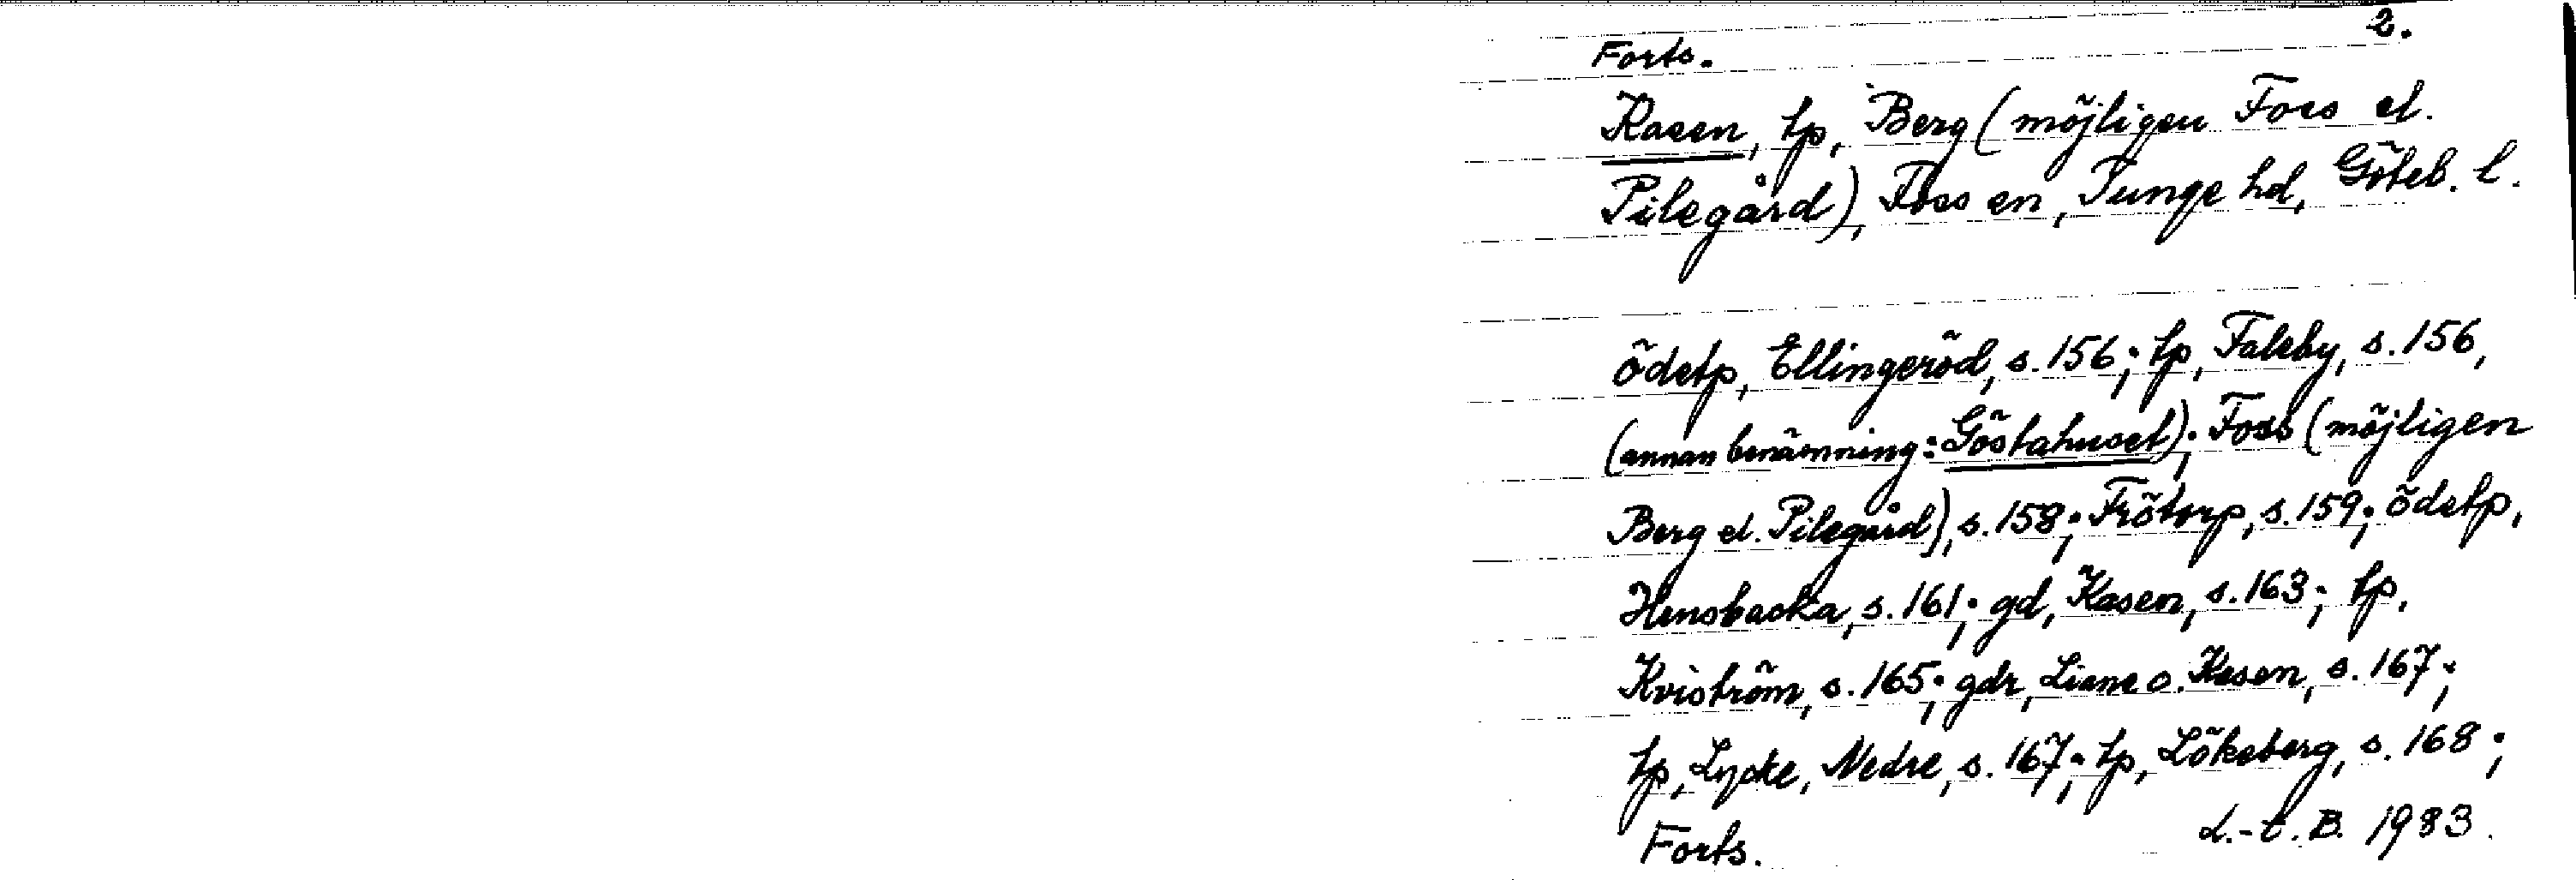 2.
Forts.
Kasen, tp, Berg (möjligen Foss el.
Pilegård), Foss sn, Tunge hd, Göteb. l.
ödetp, Ellingeröd, s. 156; tp, Faleby, s. 156,
(annan benämning: Göstahuset); Foss (möjligen
Berg el. Pilegård), s. 158; Frötorp, s. 159; ödetp,
Hensbacka, s. 161; gd, Kasen, s. 163; tp,
Kviström, s. 165; gdr, Liane o. Kasen, s. 167;
tp, Lycke, Nedre, s. 167; tp, Lökeberg, s. 168;
Forts. L.-t. B. 1983.